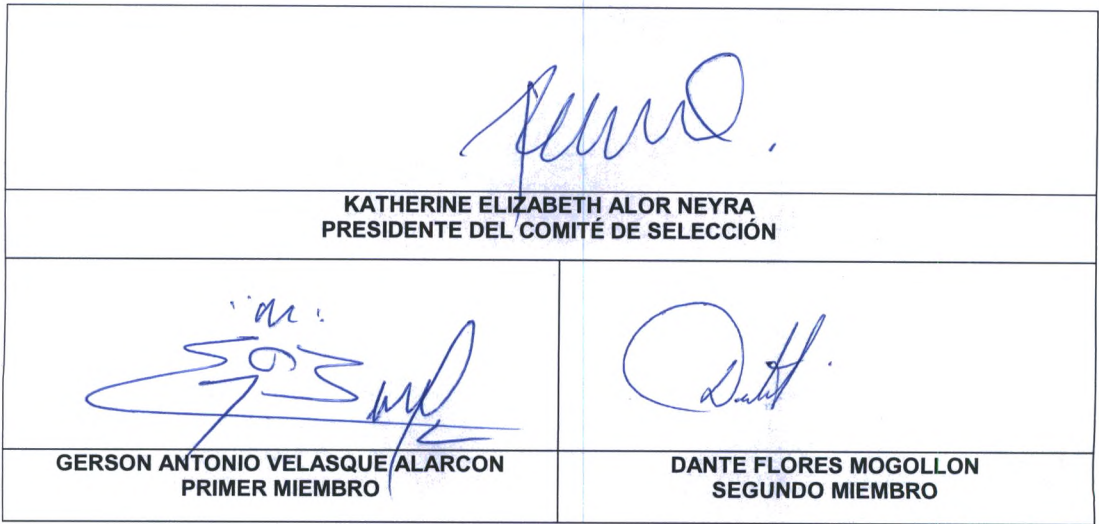 KATHERINE ELIZABETH ALOR NEYRA
PRESIDENTE DEL COMITÉ DE SELECCIÓN
GERSON ANTONIO VELASQUE ALARCON
PRIMER MIEMBRO
DANTE FLORES MOGOLLON
SEGUNDO MIEMBRO